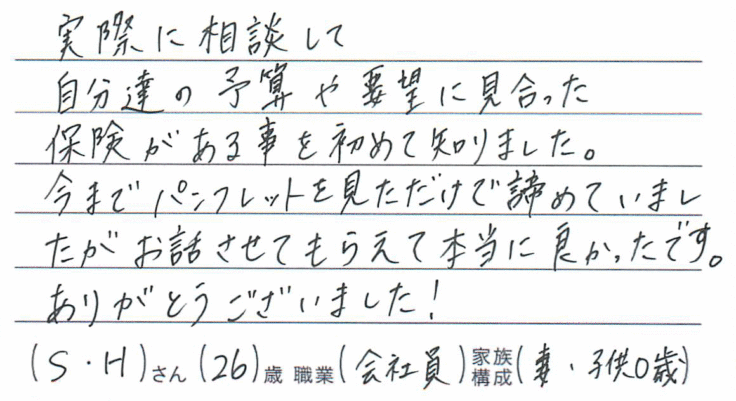 実際に相談して
自分達の予算や要望に見合った
保険がある事を初めて知りました。
今までパンフレットを見ただけで諦めていまし
たがお話させてもらえて本当に良かったです。
ありがとうございました!
(S・H)さん(26)歳 職業(会社員)家族構成(妻・子供0歳)